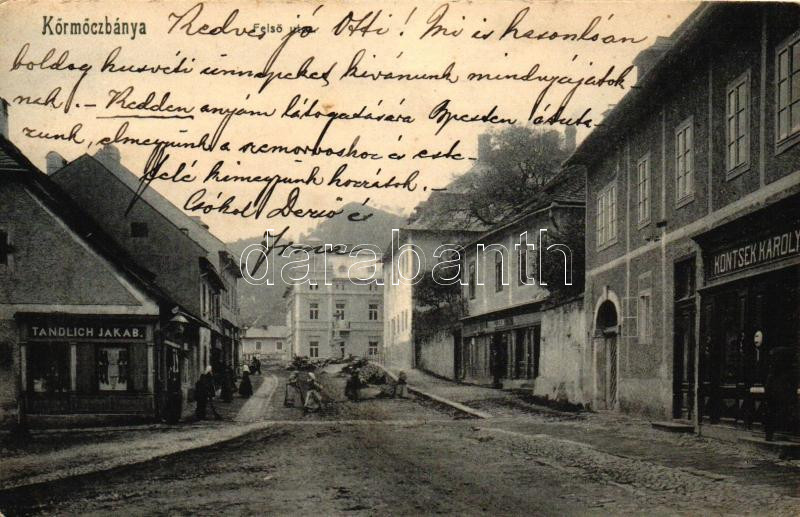 Kőrmőczbánya
Felső utcza
Kedves jó Otti! Mi is hasonlóan
boldog husvéti ünnepeket kivánunk mindnyájatok-
nak. - Kedden anyám látogatására Bpesten átuta-
zunk, elmegyünk a szemorvoshoz is este-
felé kimegyünk hozzátok. -
Csókol Dezső és
Irma
darabanth
TANDLICH JAKAB.
KONTSEK KÁROLY